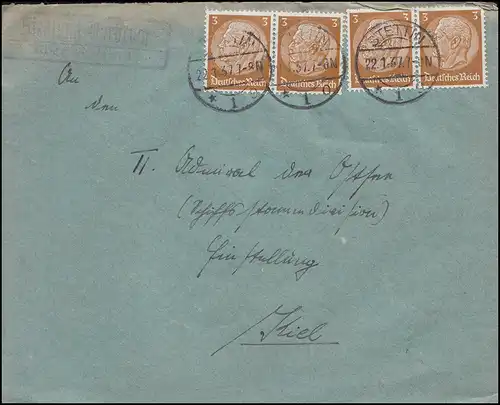 3 3 3 3
STETTIN STETTIN
22.1.37.7-8N
* 1 * 1
Deutsches Reich Deutsches Reich Deutsches Reich Deutsches Reich
An
den
II. Admiral der Ostsee
(Schiffsstammdivision)
Einstellung
Kiel